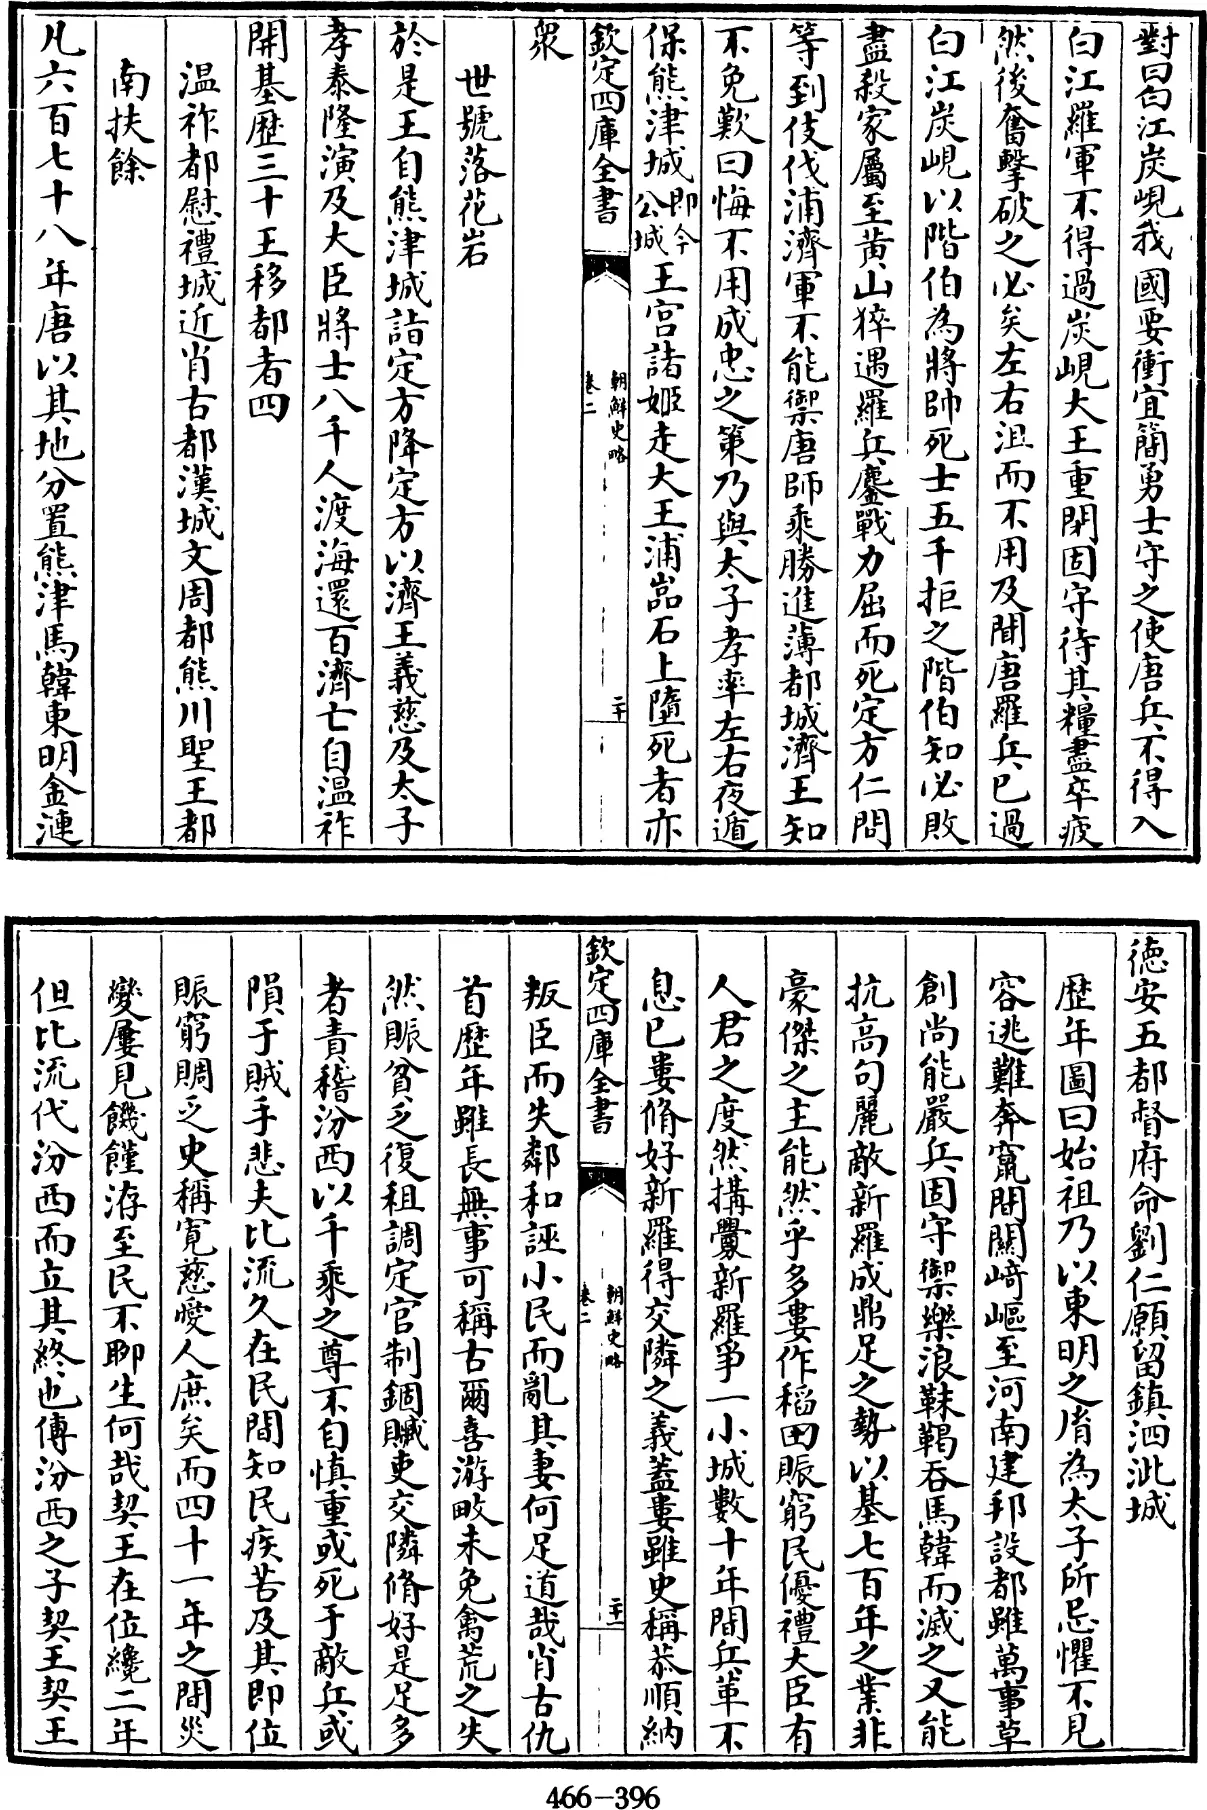 對曰白江炭峴我國要衝宜簡勇士守之使唐兵不得入
白江羅軍不得過炭峴大王重閉固守待其糧盡卒疲
然後奮擊破之必矣左右沮而不用及聞唐羅兵已過
白江炭峴以階伯為將帥死士五千拒之階伯知必敗
盡殺家屬至黃山猝遇羅兵鏖戰力屈而死定方仁問
等到伎伐浦濟軍不能禦唐師乘勝進薄都城濟王知
不免歎曰悔不用成忠之策乃與太子孝率左右夜遁
保熊津城即今公城王宮諸姬走大王浦嵓石上墮死者亦
欽定四庫全書
朝鮮史略
卷二
二十
衆
世號落花岩
於是王自熊津城詣定方降定方以濟王義慈及太子
孝泰隆演及大臣將士八千人渡海還百濟亡自温祚
開基歷三十王移都者四
温祚都慰禮城近肖古都漢城文周都熊川聖王都
南扶餘
凡六百七十八年唐以其地分置熊津馬韓東明金漣
德安五都督府命劉仁願留鎮泗沘城
歷年圖曰始祖乃以東明之胤為太子所忌懼不見
容逃難奔竄間關崎嶇至河南建邦設都雖萬事草
創尚能嚴兵固守禦樂浪靺鞨吞馬韓而滅之又能
抗高句麗敵新羅成鼎足之勢以基七百年之業非
豪傑之主能然乎多婁作稻田賑窮民優禮大臣有
人君之度然搆釁新羅爭一小城數十年間兵革不
息己婁脩好新羅得交隣之義蓋婁雖史稱恭順納
欽定四庫全書
朝鮮史略
卷二
二十一
叛臣而失鄰和誣小民而亂其妻何足道哉肖古仇
首歷年雖長無事可稱古爾喜游畋未免禽荒之失
然賑貧乏復租調定官制錮贓吏交隣脩好是足多
者責稽汾西以千乘之尊不自慎重或死于敵兵或
隕于賊手悲夫比流久在民間知民疾苦及其即位
賑窮賙乏史稱寬慈愛人庶矣而四十一年之間災
變屢見饑饉洊至民不聊生何哉契王在位纔二年
但比流代汾西而立其終也傳汾西之子契王契王
466-396